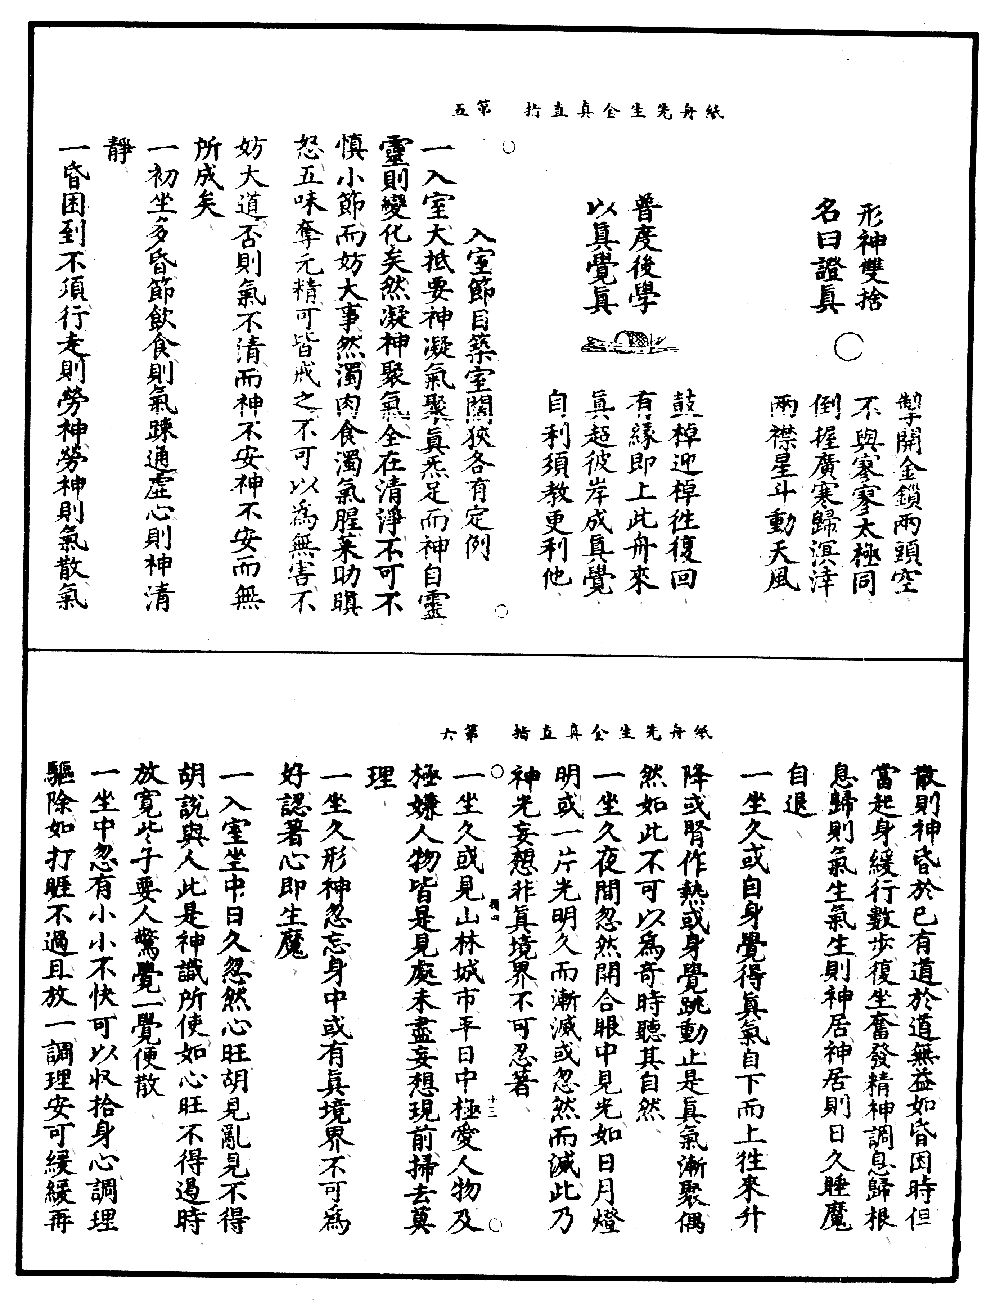 紙舟先生全真直指　第五
形神雙捨
名曰證真
掣開金鎖兩頭空
不與寥寥太極同
倒握廣寒歸溟涬
兩襟星斗動天風
普度後學
以真覺真
鼓棹迎棹往復回
有緣即上此舟來
真超彼岸成真覺
自利須教更利他
入室節目築室闊狹各有定例
一入室大抵要神凝氣聚真炁足而神自靈
靈則變化矣然凝神聚氣全在清淨不可不
慎小節而妨大事然濁肉食濁氣腥葷助瞋
怒五味奪元精可皆戒之不可以為無害不
妨大道否則氣不清而神不安神不安而無
所成矣
一初坐多昏節飲食則氣踈通虛心則神清
靜
一昏困到不須行走則勞神勞神則氣散氣
紙舟先生全真直指　第六
散則神昏於已有道於道無益如昏困時但
當起身緩行數步復坐奮發精神調息歸根
息歸則氣生氣生則神居神居則日久睡魔
自退
一坐久或自身覺得真氣自下而上往來升
降或腎作熱或身覺跳動止是真氣漸聚偶
然如此不可以為奇時聽其自然
一坐久夜間忽然開合眼中見光如日月燈
明或一片光明久而漸滅或忽然而滅此乃
神光妄想非真境界不可忍著
十三
一坐久或見山林城市平日中極愛人物及
極嫌人物皆是見處未盡妄想現前掃去莫
理
一坐久形神忽忘身中或有真境界不可為
好認著心即生魔
一入室坐中日久忽然心旺胡見亂見不得
胡說與人此是神識所使如心旺不得遏時
放寬些子要人驚覺一覺便散
一坐中忽有小小不快可以収拾身心調理
驅除如打睚不過且放一調理安可緩緩再